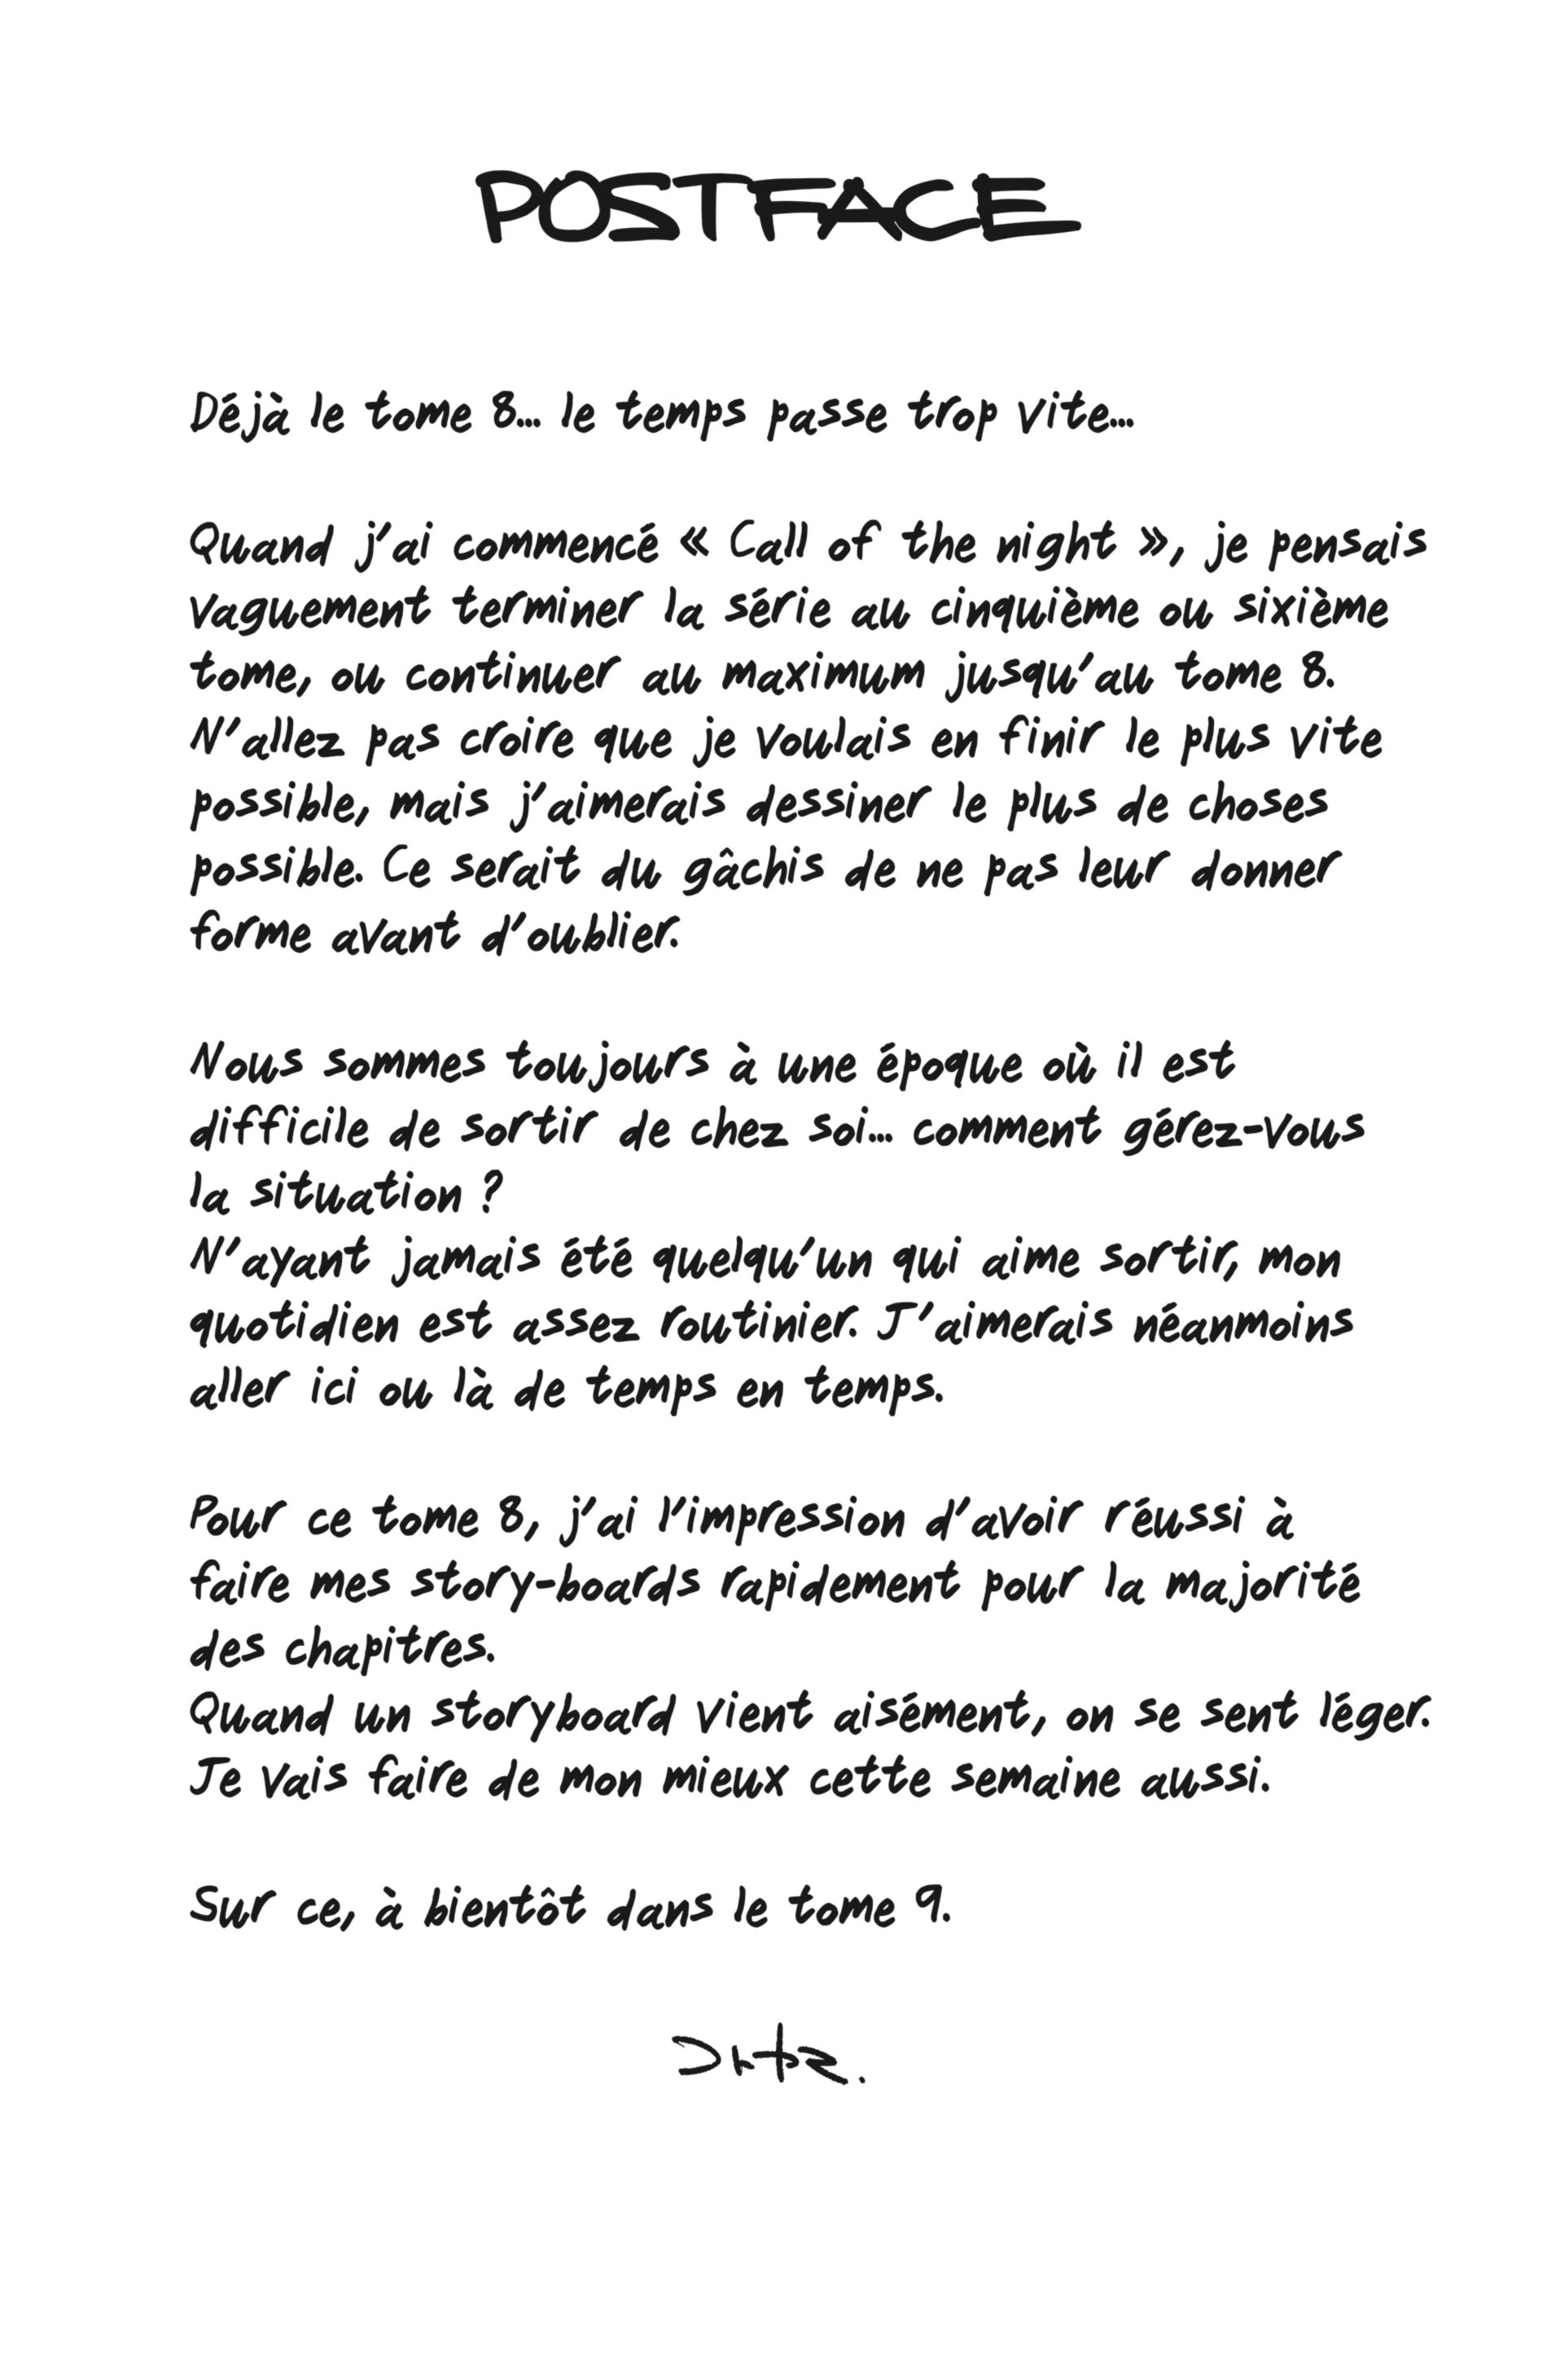 POSTFACE
Déjà le tome 8... le temps passe trop vite...
Quand j'ai commencé « Call of the night », je pensais
vaguement terminer la série au cinquième ou sixième
tome, ou continuer au maximum jusqu'au tome 8.
N'allez pas croire que je voulais en finir le plus vite
possible, mais j'aimerais dessiner le plus de choses
possible. Ce serait du gâchis de ne pas leur donner
forme avant d'oublier.
Nous sommes toujours à une époque où il est
difficile de sortir de chez soi... comment gérez-vous
la situation ?
N'ayant jamais été quelqu'un qui aime sortir, mon
quotidien est assez routinier. J'aimerais néanmoins
aller ici ou là de temps en temps.
Pour ce tome 8, j'ai l'impression d'avoir réussi à
faire mes story-boards rapidement pour la majorité
des chapitres.
Quand un storyboard vient aisément, on se sent léger.
Je vais faire de mon mieux cette semaine aussi.
Sur ce, à bientôt dans le tome 9.